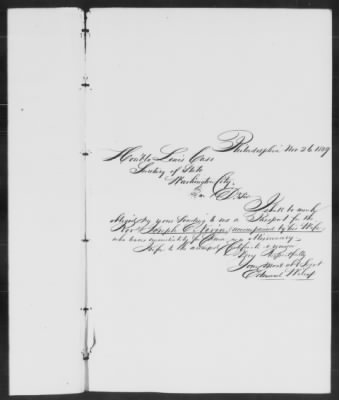 Philadelphia Nov 26 1859
Honble Lewis Cass
Secretary of State
Washington City.
Dr Sir
I shall be much
by your sending to me a Passport for the
Revd Joseph C. Nevin, accompanied by his Wife
who leaves immediately for China, as a Missionary
Very Respectfully
Your Most Obt Servt
Edmund